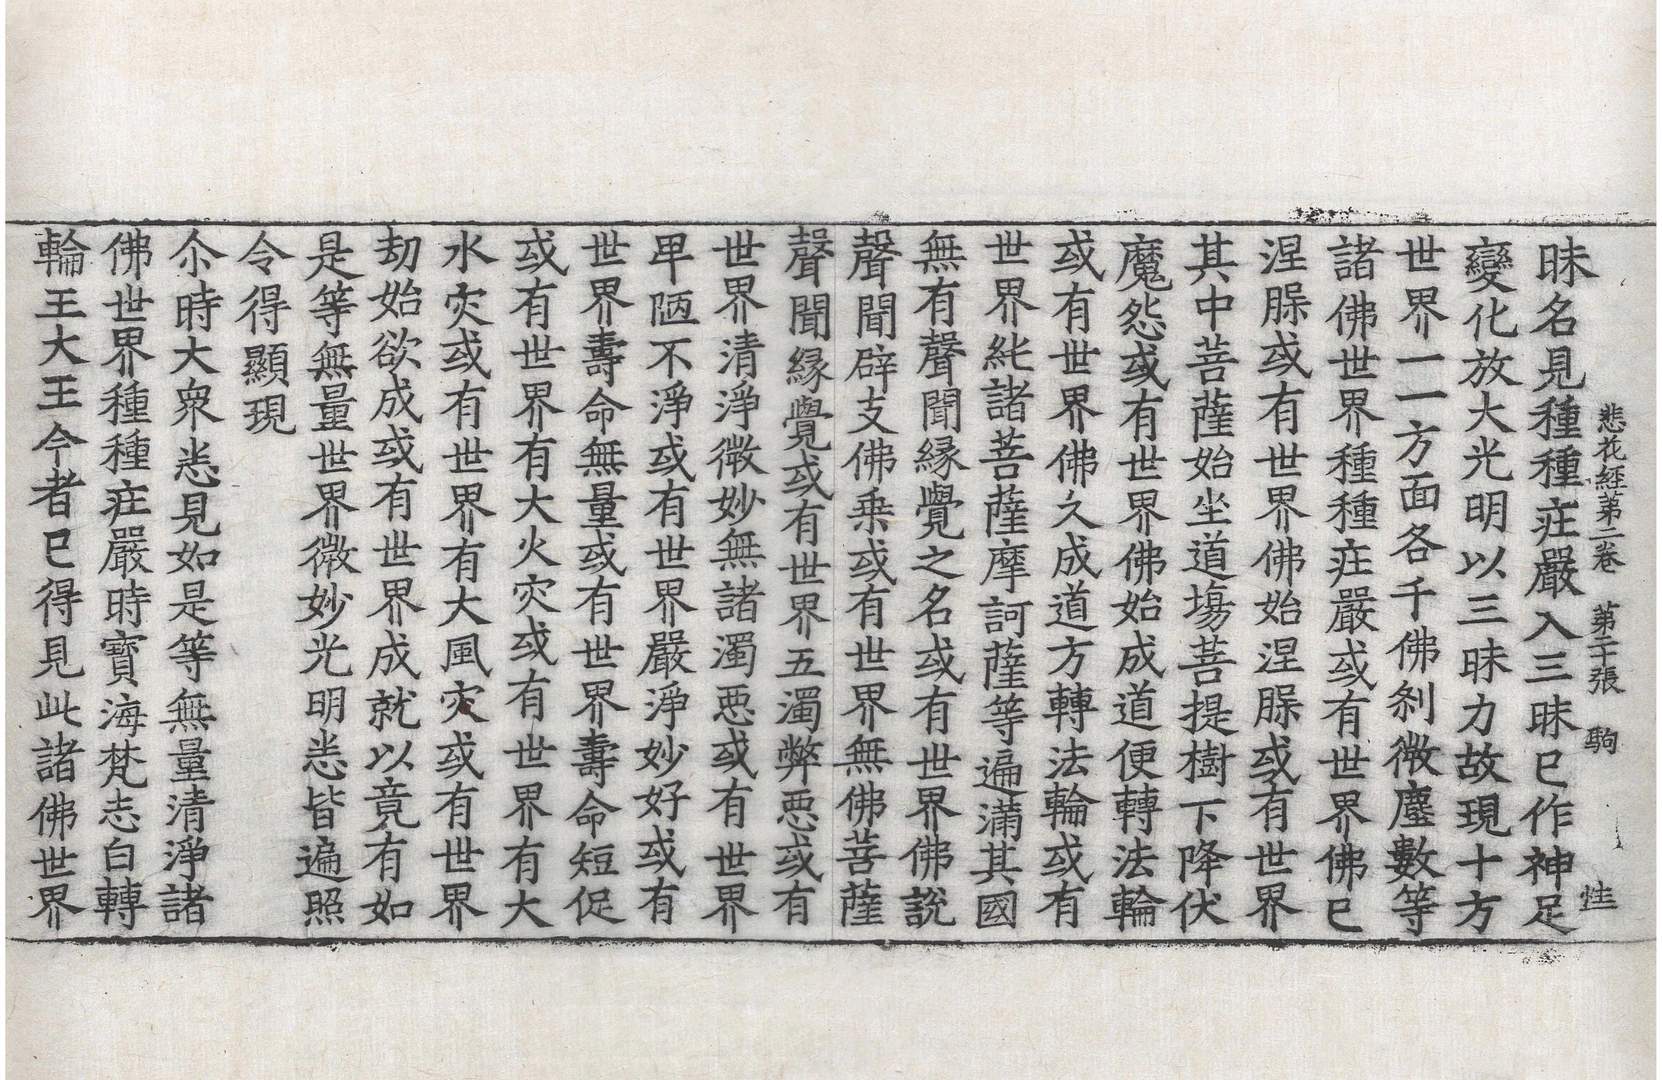 悲花經第二卷 第二十張 駒
昧名見種種庄嚴入三昧已作神足
變化放大光明以三昧力故現十方
世界一一方面各千佛刹微塵數等
諸佛世界種種庄嚴或有世界佛已
涅槃或有世界佛始涅槃或有世界
其中菩薩始坐道場菩提樹下降伏
魔怨或有世界佛始成道便轉法輪
或有世界佛久成道方轉法輪或有
世界純諸菩薩摩訶薩等遍滿其國
無有聲聞緣覺之名或有世界佛說
聲聞辟支佛乗或有世界無佛菩薩
聲聞緣覺或有世界五濁弊惡或有
世界清淨微妙無諸濁惡或有世界
卑陋不淨或有世界嚴淨妙好或有
世界壽命無量或有世界壽命短促
或有世界有大火灾或有世界有大
水灾或有世界有大風灾或有世界
劫始欲成或有世界成就以竟有如
是等無量世界微妙光明悉皆遍照
令得顯現
尒時大衆悉見如是等無量清淨諸
佛世界種種庄嚴時寶海梵志白轉
輪王大王今者已得見此諸佛世界